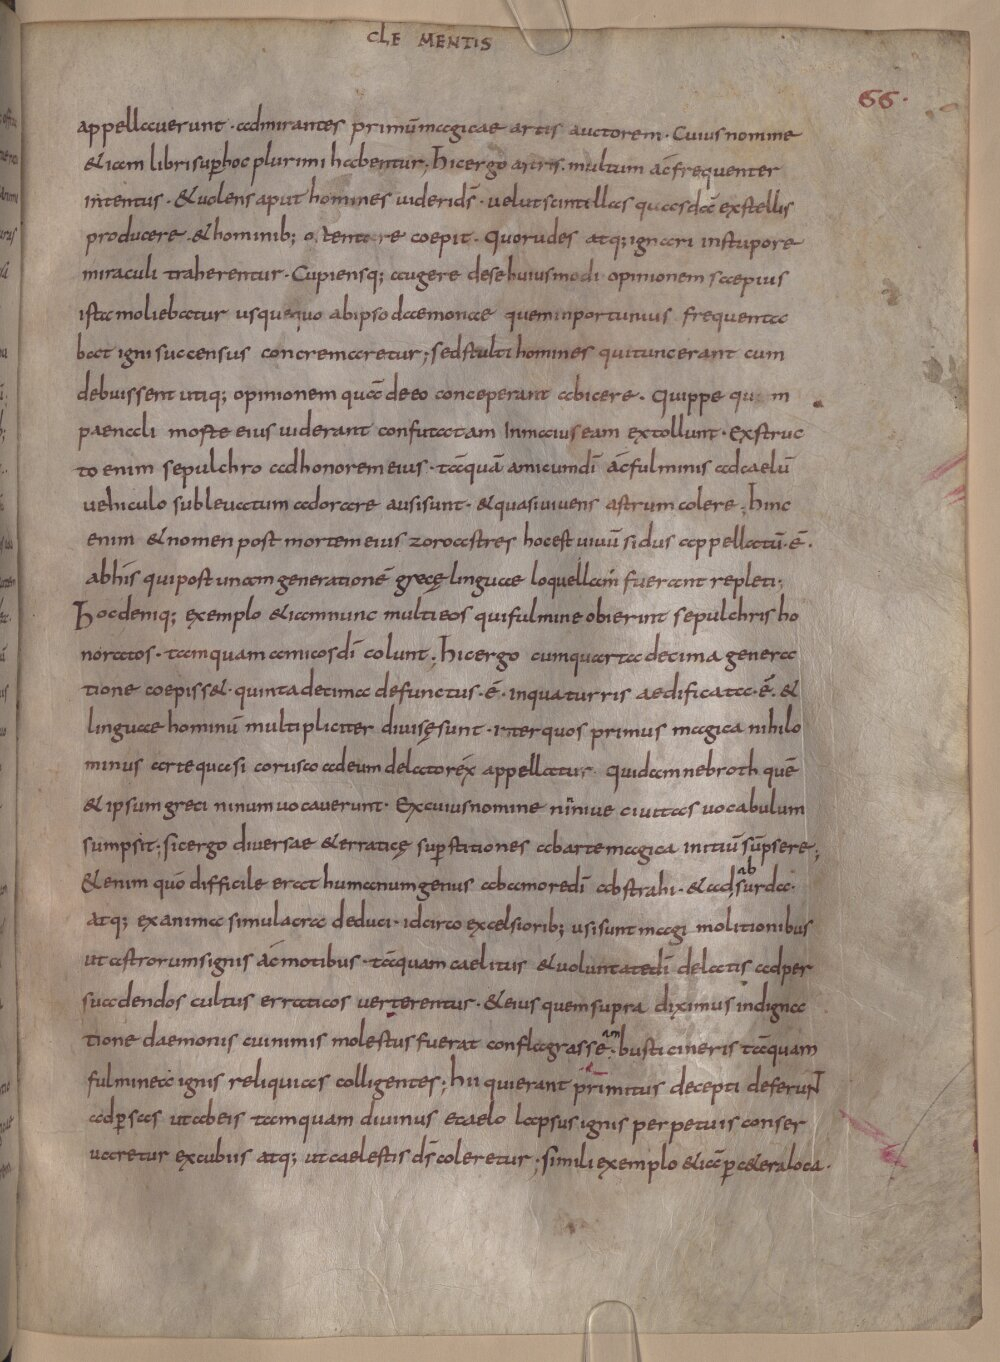 CLE MENTIS
66.
appellauerunt · admirantes primū magicae artis auctorem · Cuius nomine
& iam libri sup hoc plurimi habentur; hic ergo astris multum ac frequenter
intentus · & uolens aput homines uideri ds̄ · uelut scintillas quasdā ex stellis
producere · & hominib; ostentare coepit · Quo rudes atq; ignari in stupore
miraculi traherentur · Cupiensq; augere de se huiusmodi opinionem saepius
ista moliebatur usquequo ab ipso daemonae quem inportunius frequenta
bat igni succensus concremaretur; sed stulti homines qui tunc erant cum
debuissent utiq; opinionem quā de eo conceperant abicere · Quippe qu m
paenali morte eius uiderant confutatam In maius eam extollunt · Exstruc
to enim sepulchro ad honorem eius · tāquā amicum dī ac fulminis ad caelū
uehiculo subleuatum adorare ausi sunt · & quasi uiuens astrum colere; hinc
enim & nomen post mortem eius zoroastres hoc est uiuū sidus appellatū · ē ·
ab his qui post unam generationē grecę linguae loquellam fuerant repleti;
Hoc deniq; exemplo & iam nunc multi eos qui fulmine obierint sepulchris ho
noratos · tamquam amicos dī colunt; hic ergo cum quarta decima genera
tione coepiss& · quinta decima defunctus · ē · in qua turris aedificata · ē · &
linguae hominū multipliciter diuisę sunt · inter quos primus magica nihilo
minus arte quasi corusco ad eum delato rex appellatur · quidam nebroth quē
& ipsum greci ninum uocauerunt · Ex cuius nomine niniue ciuitas uocabulum
sumpsit; sic ergo diuersae & erraticę supstitiones ab arte magica initiū sūpsere;
& enim quo difficile erat humanum genus ab amore dī abstrahi · & ad surda ·
ab
atq; ex anima simulacra deduci · idcirco excelsiorib; usi sunt magi molitionibus
ut astrorum signis ac motibus · tāquam caelitus & uoluntate dī delatis ad per
suadendos cultus erraticos uerterentur · & eius quem supra diximus indigna
tione daemonis cui nimis molestus fuerat conflagrasse · busti cineris tāquam
am
fulminea ignis reliquias colligentes; hii qui erant primitus decepti deferuNT
ad psas ut ab eis tamquam diuinus e caelo lapsus ignis perpetuis conser
uaretur excubiis atq; ut caelestis ds̄ coleretur; simili exemplo & iā p c&era loca ·